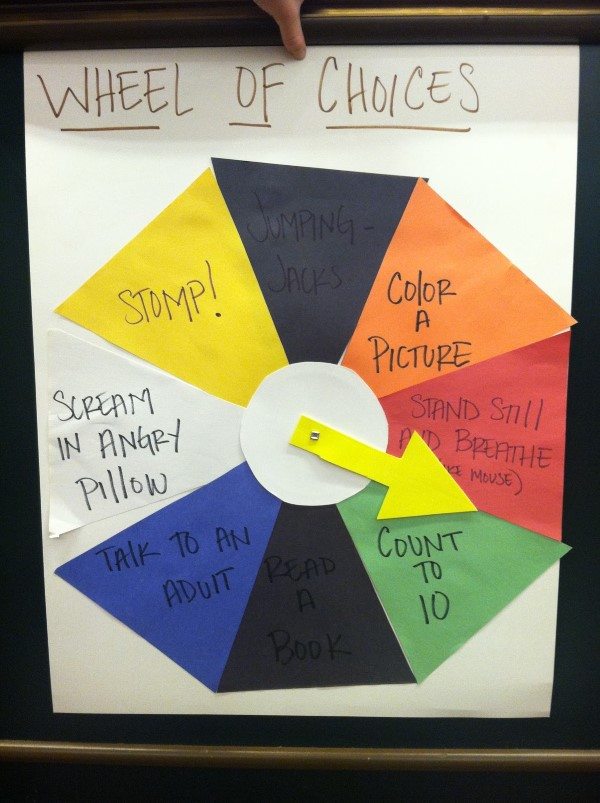 WHEEL OF CHOICES
JUMPING-
JACKS
COLOR
A
PICTURE
STAND STILL
AND BREATHE
MOUSE)
COUNT
TO
10
READ
A
BOOK
TALK TO AN
ADULT
SCREAM
IN ANGRY
PILLOW
STOMP!